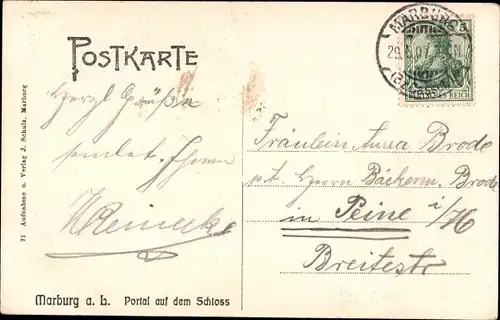 POSTKARTE
MARBURG
DEUTSCHES REICH
Herzl. Grüße
sendet Ihnen
Reinecke
Fräulein Anna Brode
p. Herrn Bäckerm. Brode
in Peine i/H
Breitestr
71 Aufnahme u. Verlag J. Schulz, Marburg
Marburg a. L. Portal auf dem Schloss